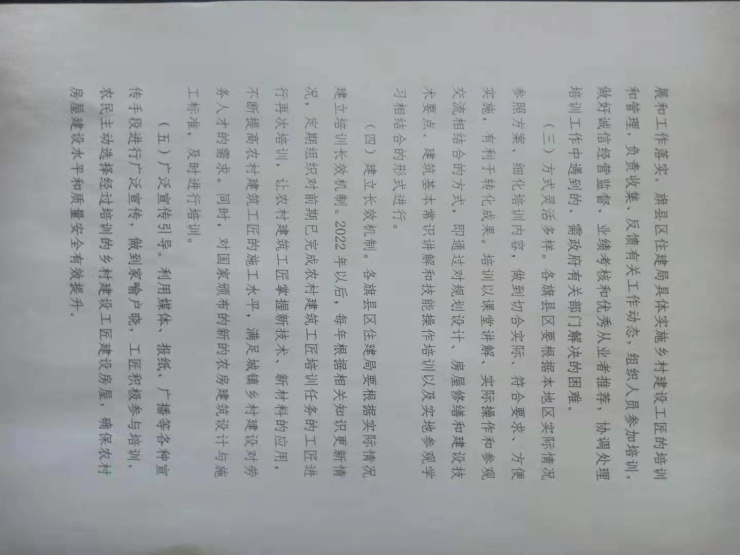 展和工作落实。旗县区住建局具体实施乡村建设工匠的培训
和管理，负责收集、反馈有关工作动态，组织人员参加培训，
做好诚信经营监督、业绩考核和优秀从业者推荐，协调处理
培训工作中遇到的、需政府有关部门解决的困难。
（三）方式灵活多样。各旗县区要根据本地区实际情况
参照方案，细化培训内容，做到切合实际、符合要求、方便
实施，有利于转化成果。培训以课堂讲解、实际操作和参观
交流相结合的方式，即通过对规划设计、房屋修缮和建设技
术要点、建筑基本常识讲解和技能操作培训以及实地参观学
习相结合的形式进行。
（四）建立长效机制。各旗县区住建局要根据实际情况
建立培训长效机制。2022 年以后，每年根据相关知识更新情
况，定期组织对前期已完成农村建筑工匠培训任务的工匠进
行再次培训，让农村建筑工匠掌握新技术、新材料的应用，
不断提高农村建筑工匠的施工水平，满足城镇乡村建设对劳
务人才的需求。同时，对国家颁布的新的农房建筑设计与施
工标准，及时进行培训。
（五）广泛宣传引导。利用媒体、报纸、广播等各种宣
传手段进行广泛宣传，做到家喻户晓，工匠积极参与培训，
农民主动选择经过培训的乡村建设工匠建设房屋，确保农村
房屋建设水平和质量安全有效提升。